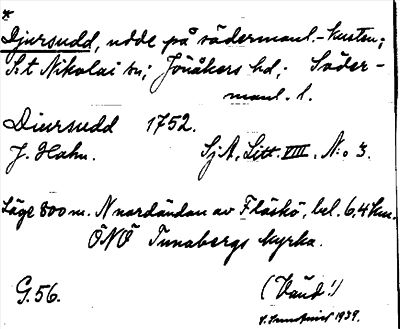 *
Djursudd, udde på södermanl.-kusten;
S:t Nikolai sn; Jönåkers hd; Söder-
manl. l.
Diursudd 1752.
J. Hahn. SjA, Litt. VIII, N:o 3.
Läge 800 m. N nordändan av Fläskö, bel. 6,4 km.
ÖNÖ Tunabergs kyrka.
G. 56. (Vänd!)
1939.